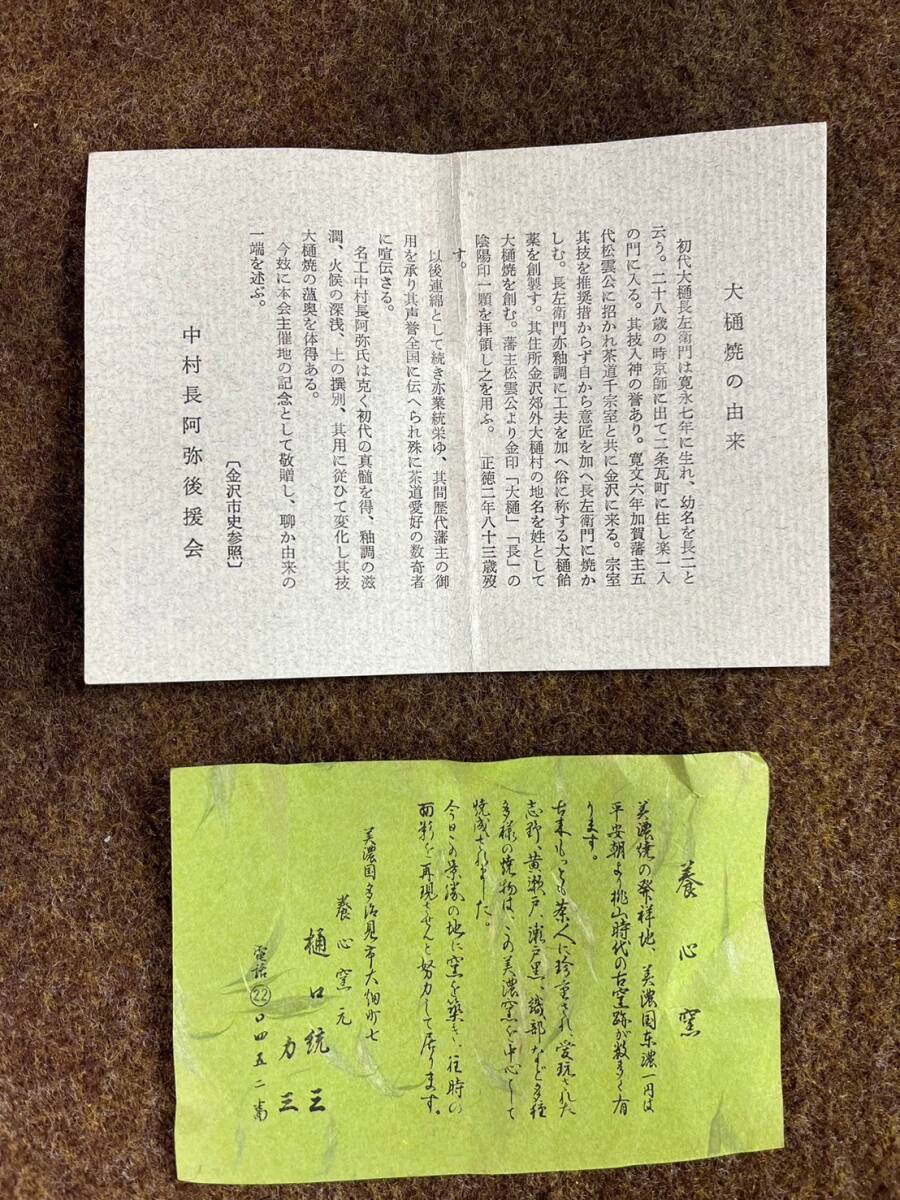 大樋焼の由来
初代大樋長左衛門は寛永七年に生れ、幼名を長二と
云う。二十八歳の時京師に出て二条瓦町に住し楽一入
の門に入る。其技入神の誉あり。寛文六年加賀藩主五
代松雲公に招かれ茶道千宗室と共に金沢に来る。宗室
其技を推奨措からず自から意匠を加へ長左衛門に焼か
しむ。長左衛門亦釉調に工夫を加へ俗に称する大樋飴
薬を創製す。其住所金沢郊外大樋村の地名を姓として
大樋焼を創む。藩主松雲公より金印「大樋」「長」の
陰陽印一顆を拝領し之を用ふ。 正徳二年八十三歳歿
す。
以後連綿として続き亦業統栄ゆ、其間歴代藩主の御
用を承り其声誉全国に伝へられ殊に茶道愛好の数奇者
に喧伝さる。
名工中村長阿弥氏は克く初代の真髄を得、釉調の滋
潤、火候の深浅、土の撰別、其用に従ひて変化し其技
大樋焼の薀奥を体得ある。
今玆に本会主催地の記念として敬贈し、聊か由来の
一端を述ぶ。
〔金沢市史参照〕
中村長阿弥後援会
養心窯
美濃焼の発祥地、美濃国东濃一円は
平安朝より桃山時代の古窯跡が数多く有
ります。
古来もっとも茶人に珍重され、愛玩された
志野、黄瀬戸、瀬戸黒、織部など多種
多様の焼物は、この美濃窯を中心して
焼成されました。
今日この景勝の地に窯を築き、往時の
面影を再現させんと努力して居ります。
美濃国多治見市大畑町七
養心窯元
樋口統三
力三
電話㉒〇四五二番